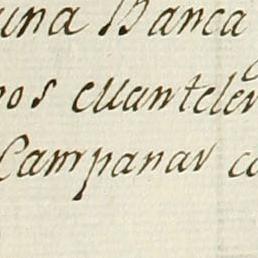 una Banca
os cuantele
Campanar co